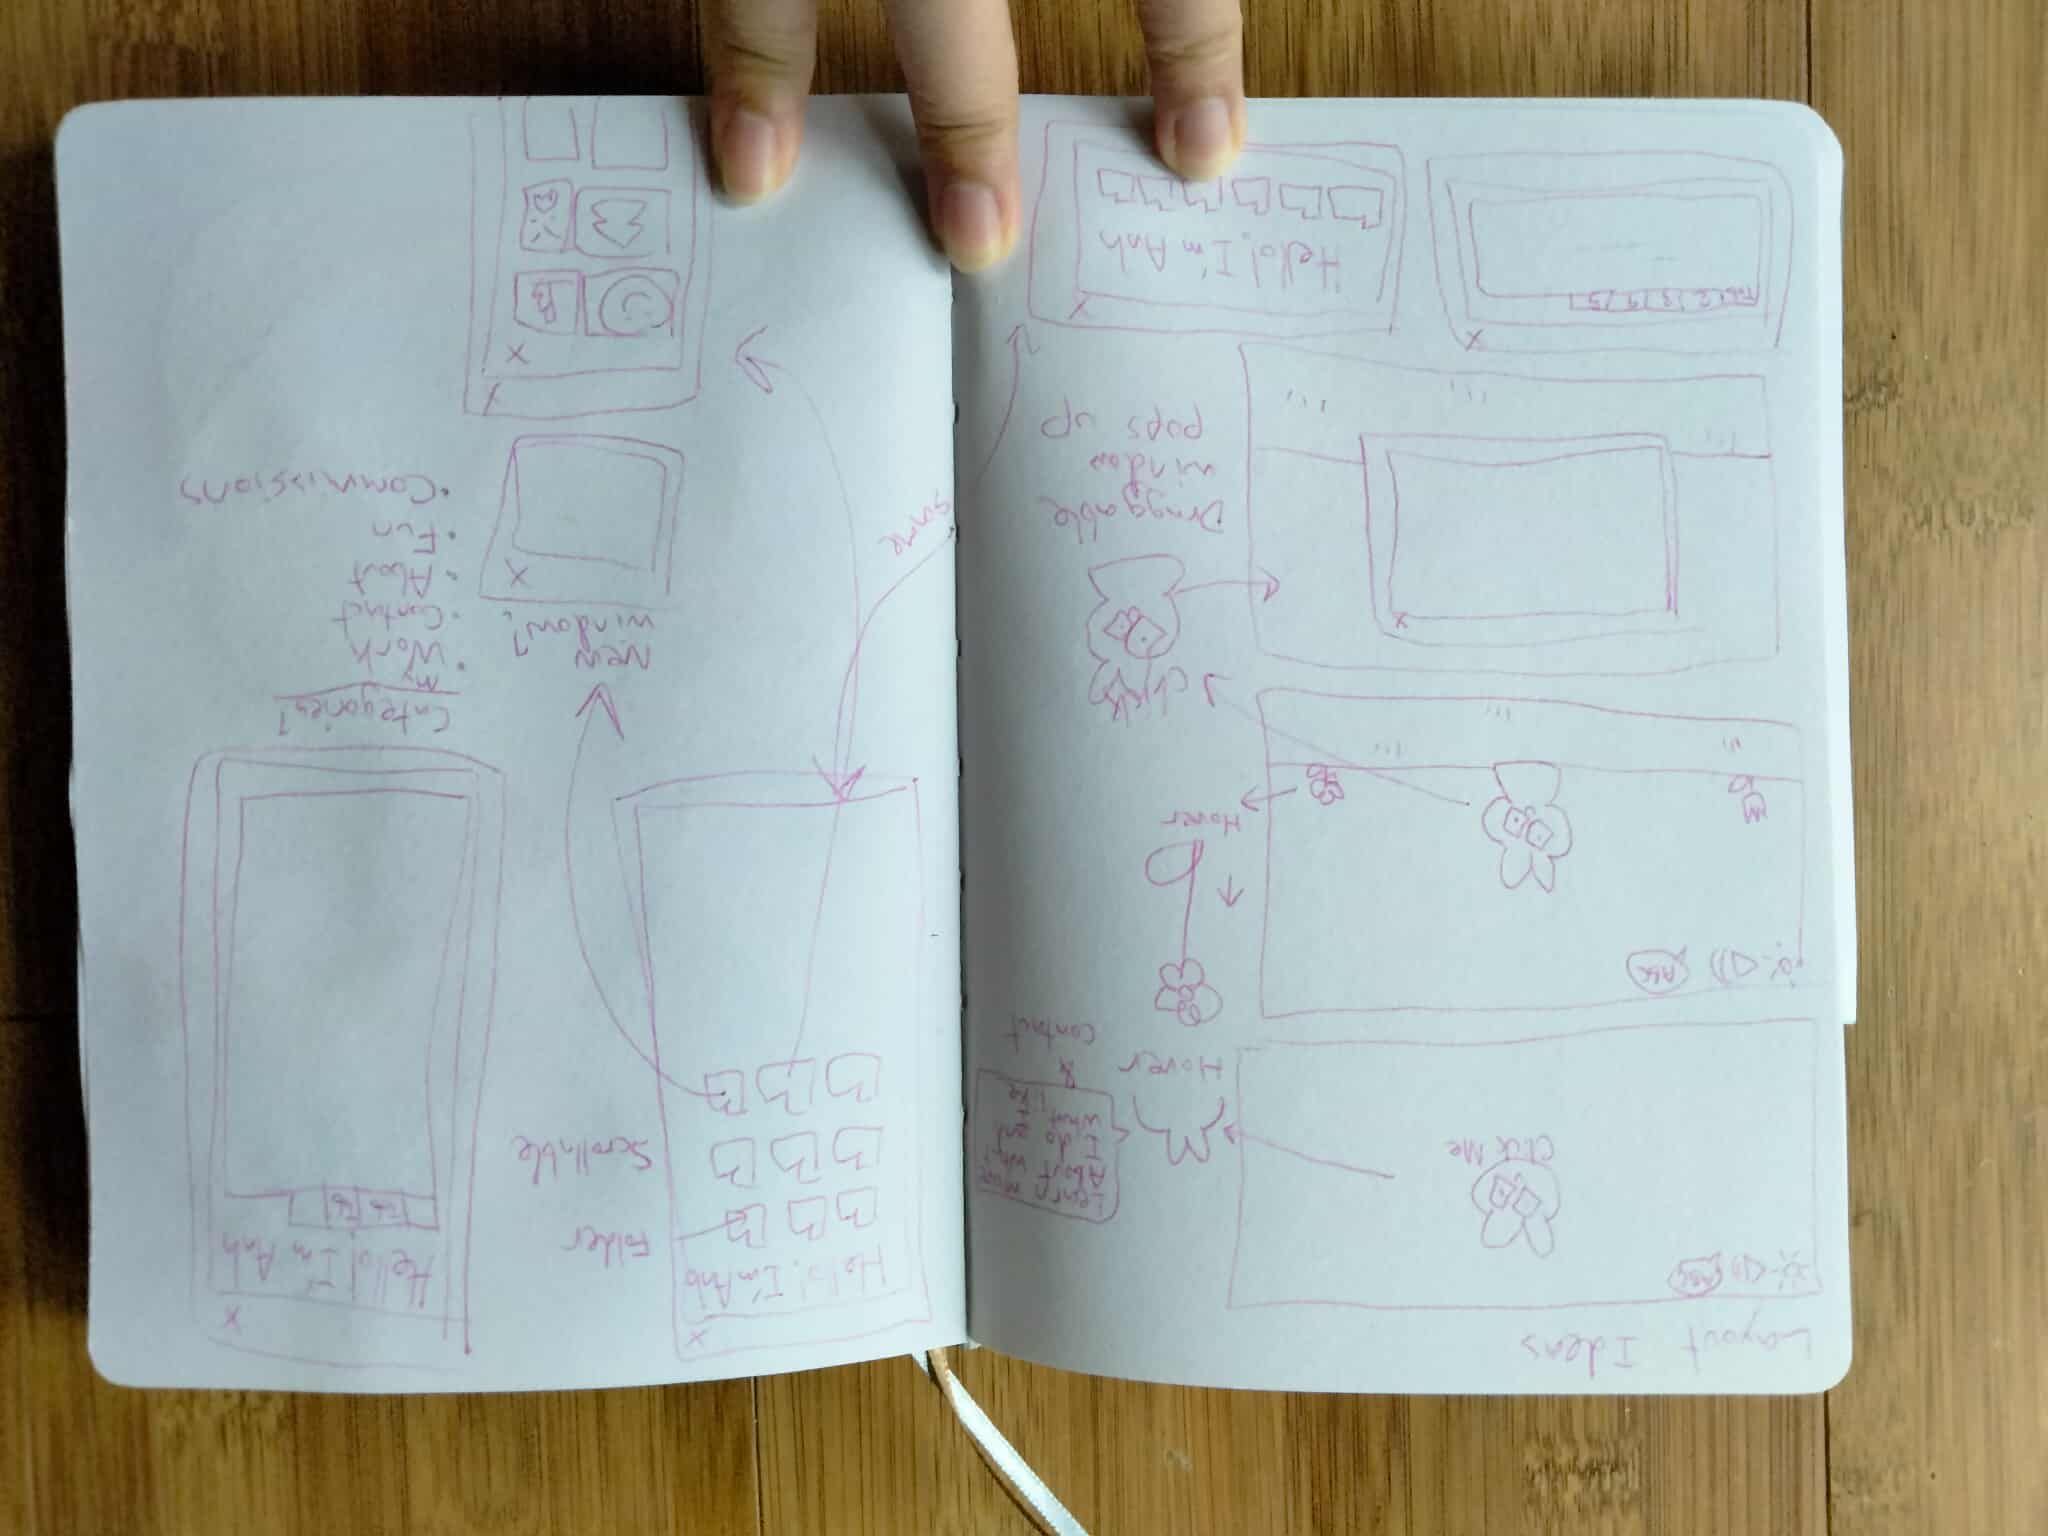 Layout Ideas
ABC
Click Me
Hover
Learn more
About what
I do and
what I
like
&
contact
ABC
Hover
Click
Draggable
window
pops up
Hello, I'm Anh
X
Tab 1
X
X
X
Hello, I'm Anh
Folder
Scrollable
same
New
window?
X
X
X
Hello! I'm Anh
Tab
Tab
X
Categories?
• My
Work
• Contact
• About
• Fun
• Commissions